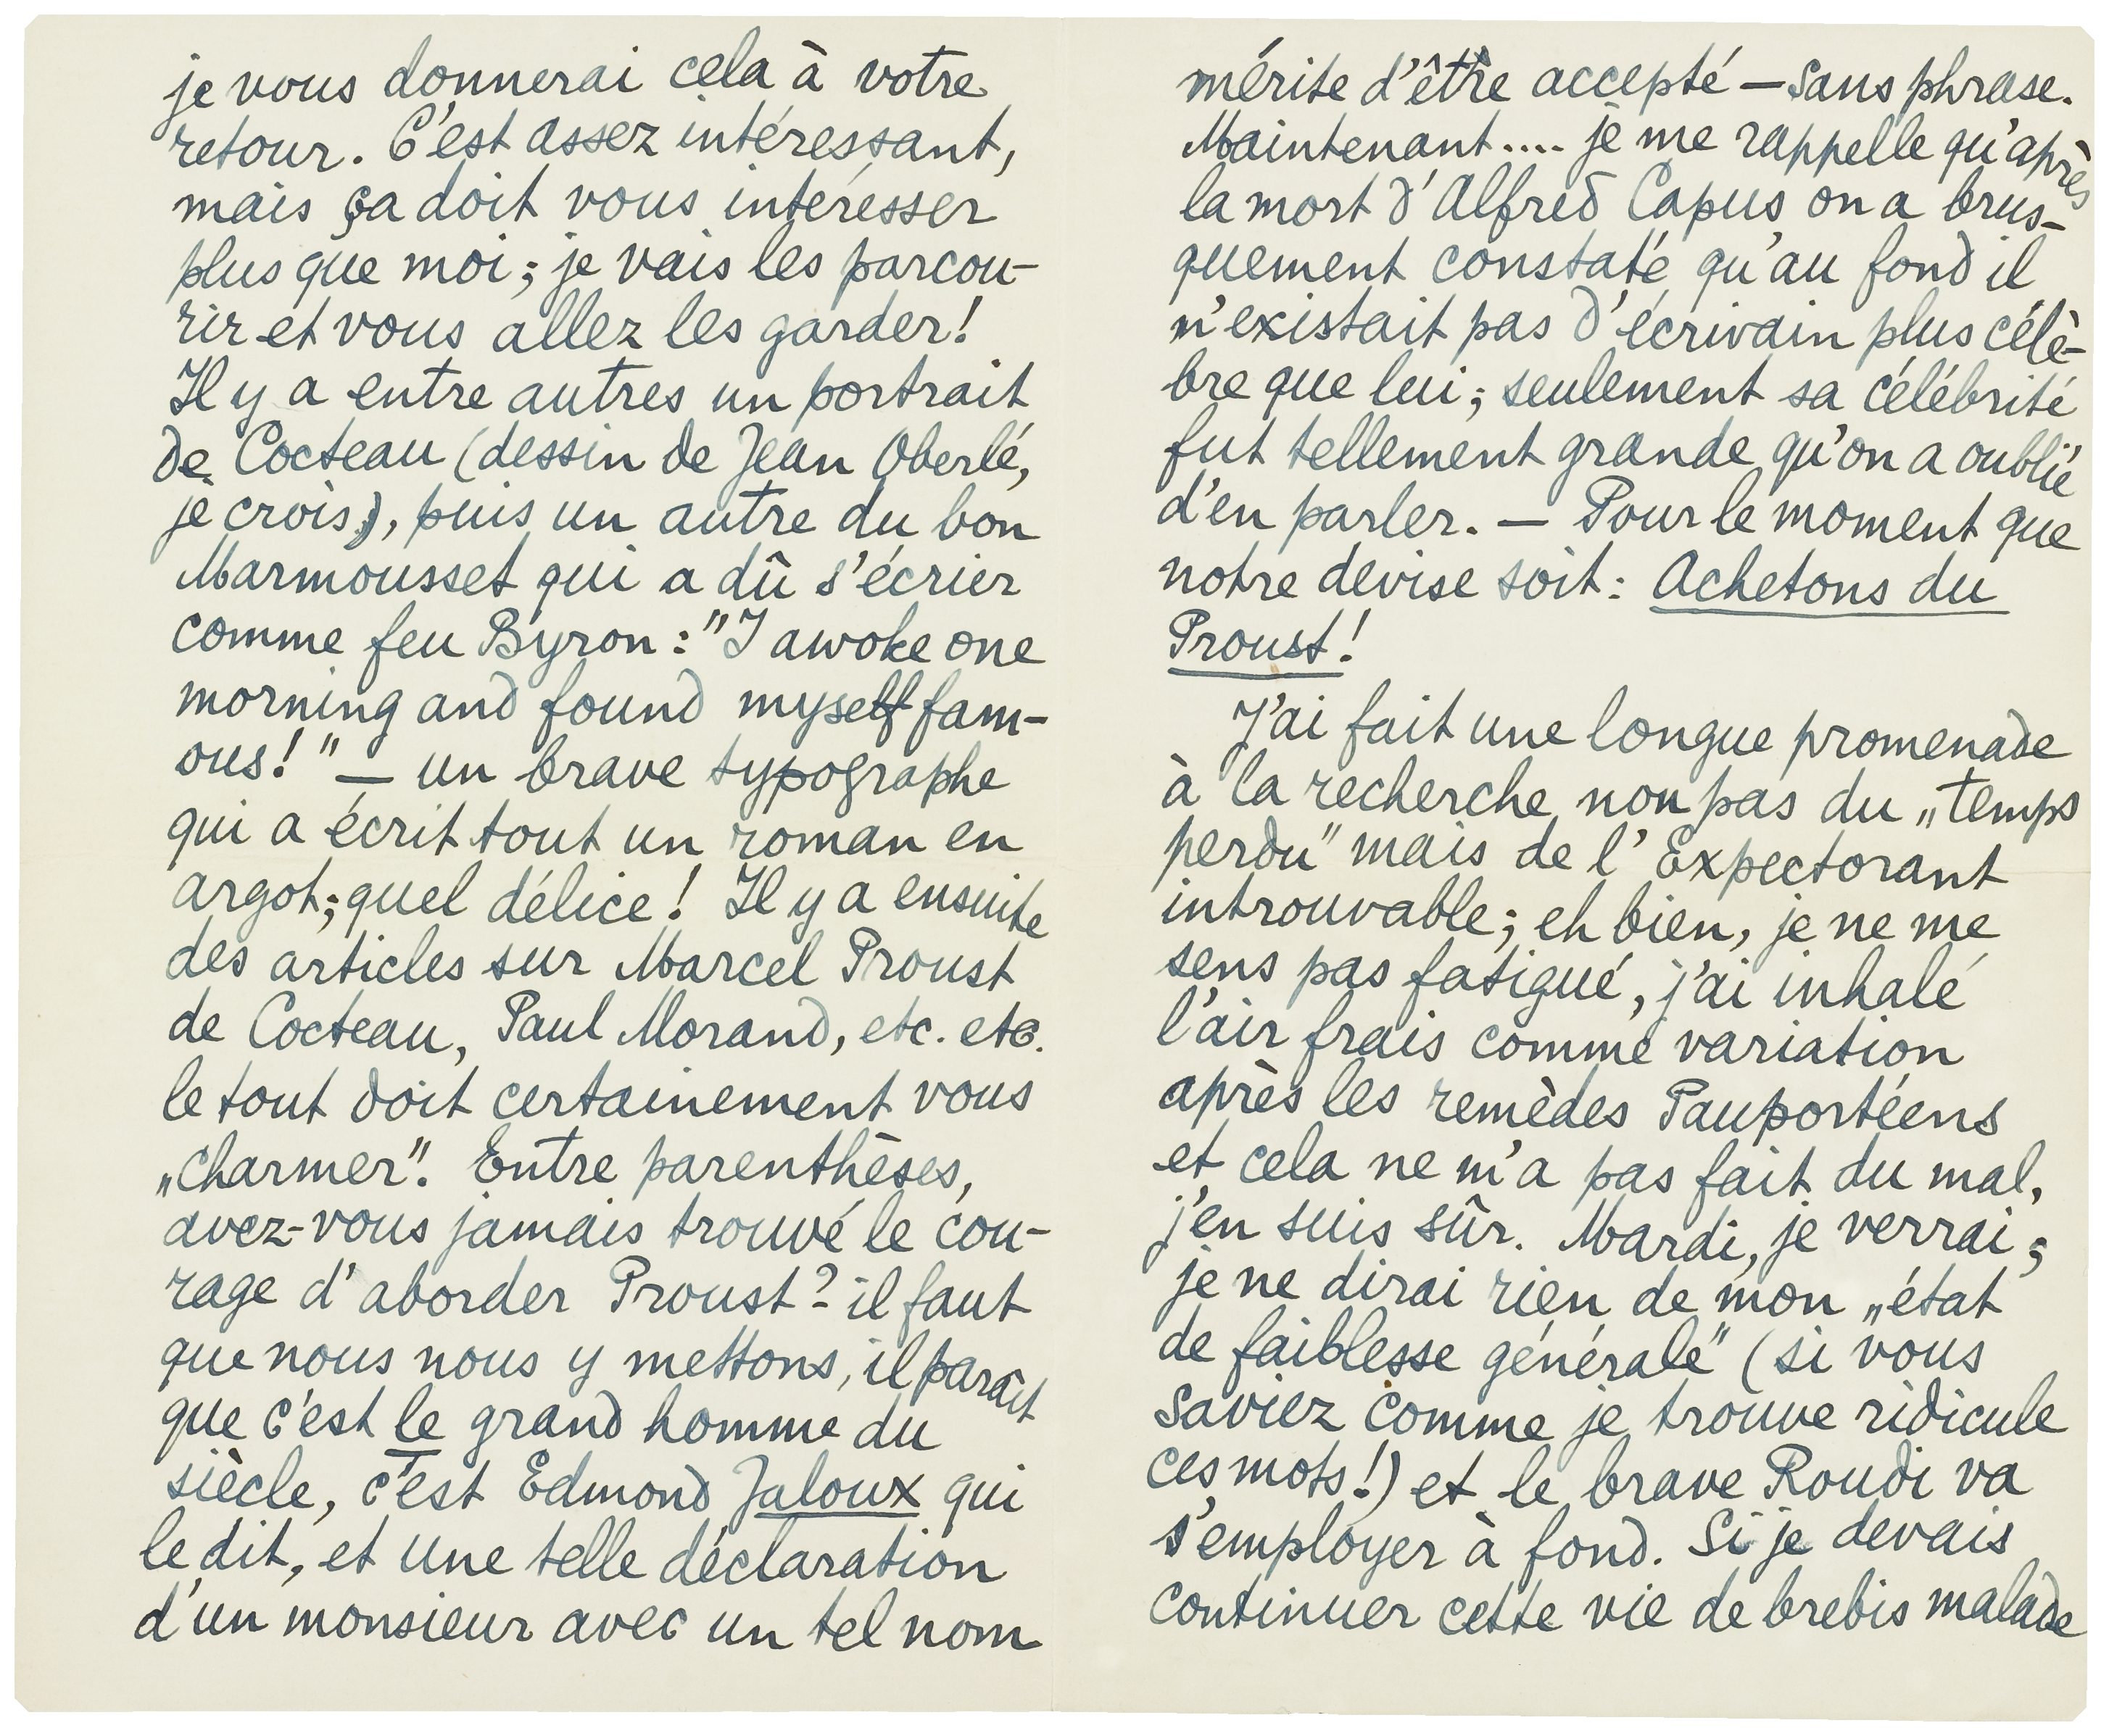 je vous donnerai cela à votre
retour. C'est assez intéressant,
mais ça doit vous intéresser
plus que moi; je vais les parcou-
rir et vous allez les garder!
Il y a entre autres un portrait
de Cocteau (dessin de Jean Oberlé,
je crois), puis un autre du bon
Marmousset qui a dû s'écrier
comme feu Byron: "I awoke one
morning and found myself fam-
ous!" — un brave typographe
qui a écrit tout un roman en
argot; quel délice! Il y a ensuite
des articles sur Marcel Proust
de Cocteau, Paul Morand, etc. etc.
le tout doit certainement vous
„charmer". Entre parenthèses,
avez-vous jamais trouvé le cou-
rage d'aborder Proust? il faut
que nous nous y mettons, il paraît
que c'est le grand homme du
siècle, c'est Edmond Jaloux qui
le dit, et une telle déclaration
d'un monsieur avec un tel nom
mérite d'être accepté — sans phrase.
Maintenant.... je me rappelle qu'après
la mort d'Alfred Capus on a brus-
quement constaté qu'au fond il
n'existait pas d'écrivain plus célè-
bre que lui; seulement sa célébrité
fut tellement grande qu'on a oublié
d'en parler. — Pour le moment que
notre devise soit: Achetons du
Proust!
J'ai fait une longue promenade
à la recherche non pas du „temps
perdu" mais de l'Expectorant
introuvable; eh bien, je ne me
sens pas fatigué, j'ai inhalé
l'air frais comme variation
après les remèdes Pauportéens
et cela ne m'a pas fait du mal,
j'en suis sûr. Mardi, je verrai;
je ne dirai rien de mon „état
de faiblesse générale" (si vous
saviez comme je trouve ridicule
ces mots!) et le brave Roudi va
s'employer à fond. Si je devais
continuer cette vie de brebis malade